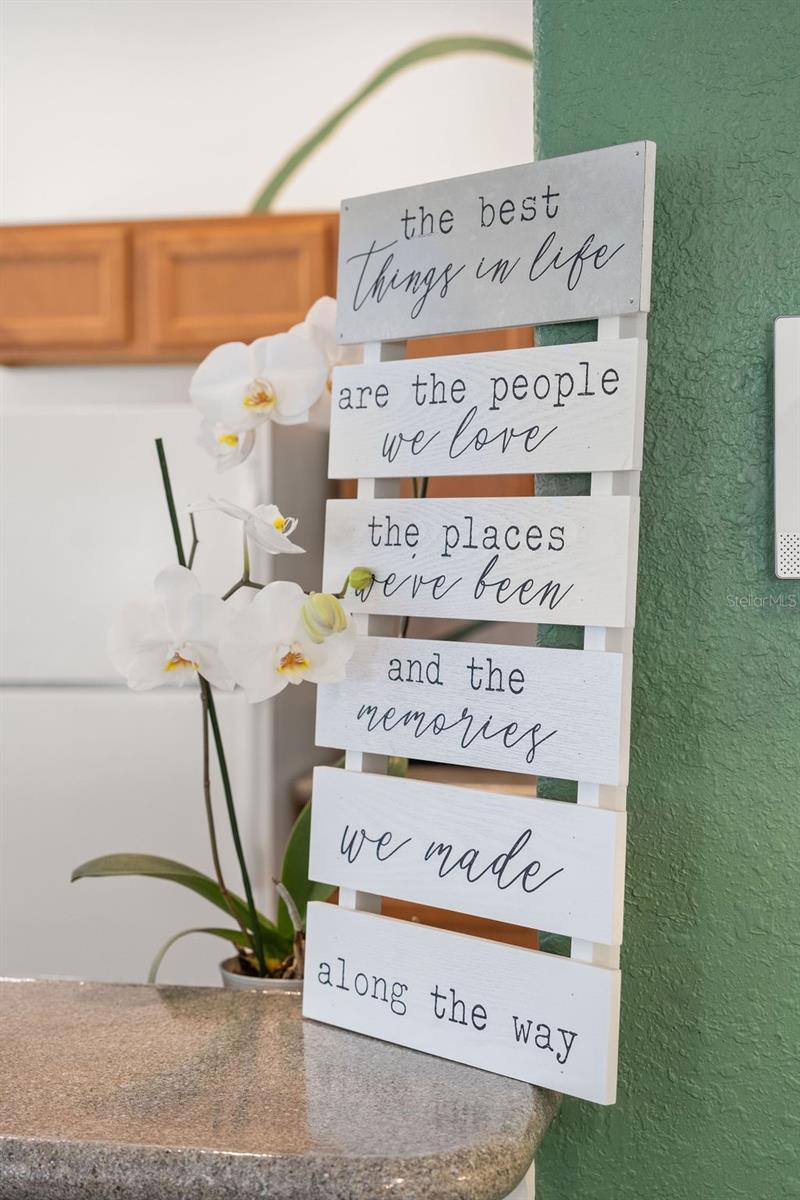 the best
things in life
are the people
we love
the places
we've been
and the
memories
we made
along the way
StellarMLS